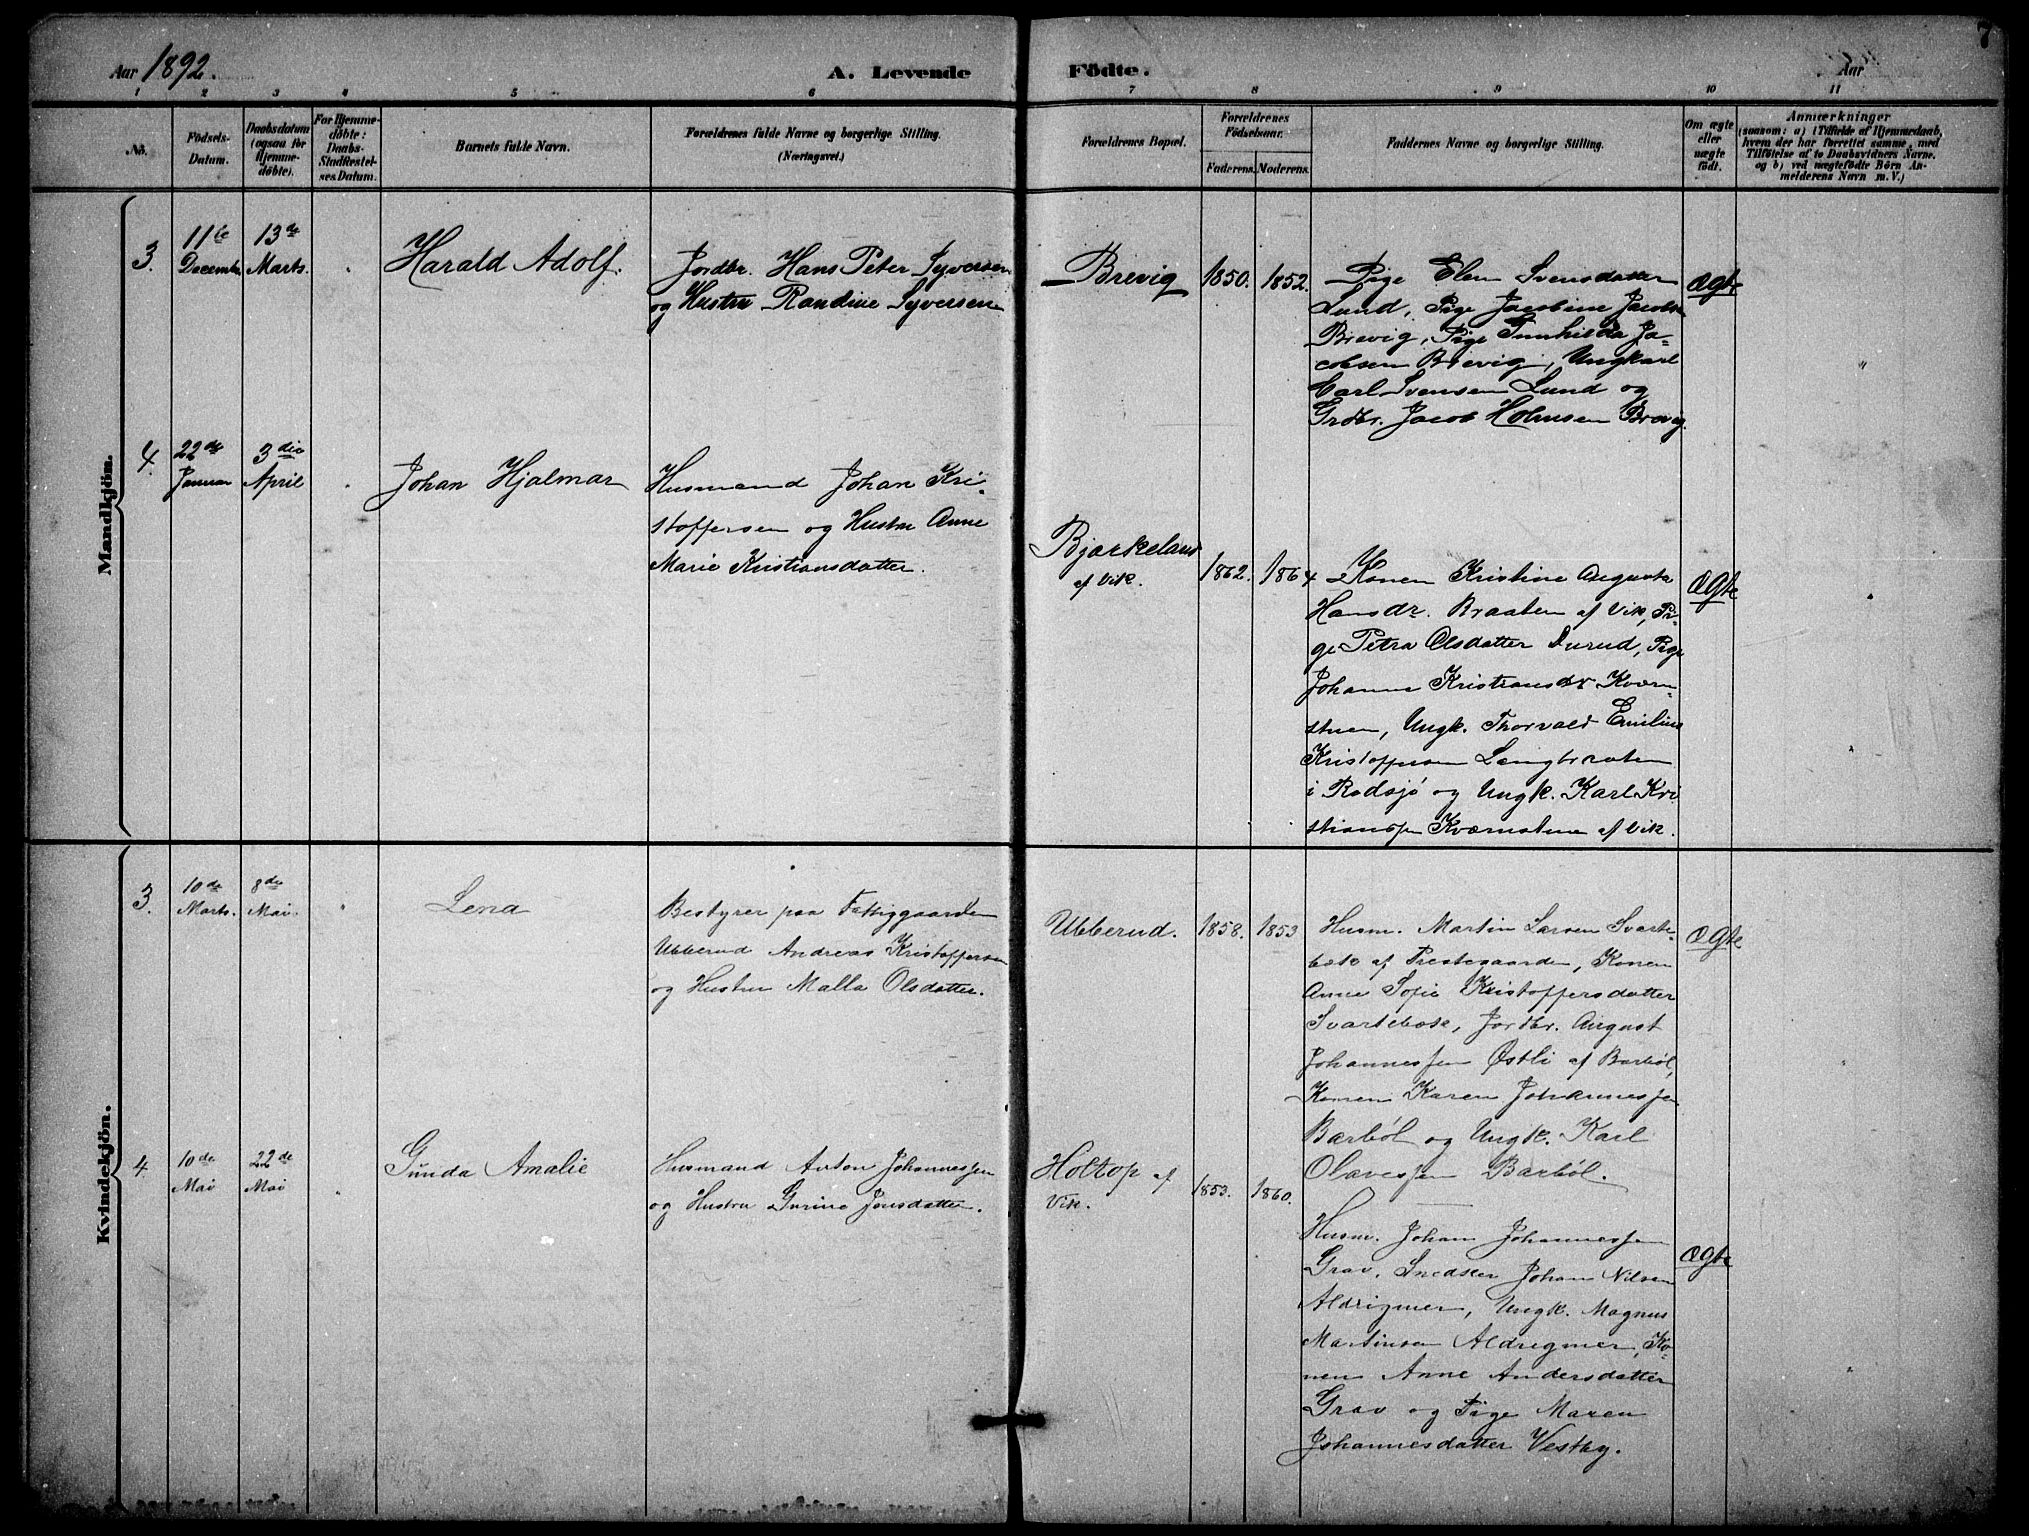 7
Aar 1892.
A. Levende Födte.
Aar
1 2 3 4 5 6 7 8 9 10 11
No.
Födsels-
Datum.
Daabsdatum
(ogsaa for
Hjemme-
døbte).
For Hjemme-
døbte:
Daabs-
Stadfestel-
ses Datum.
Barnets fulde Navn.
Forældrenes fulde Navne og borgerlige Stilling.
(Næringsvei.)
Forældrenes Bopæl.
Forældrenes
Födselsaar.
Faderens. Moderens.
Faddernes Navne og borgerlige Stilling.
Om ægte
eller
uægte
født.
Anmærkninger
(saasom: a) i Tilfælde af Hjemmedaab,
hvem der har forrettet samme, med
Tilföielse af to Daabsvidners Navne,
og b) ved uægtefødte Börn An-
melderens Navn m. V.)
Mandkjön.
3.
11te
Decembr.
13de
Marts.
Harald Adolf.
Jordbr. Hans Peter Syversen
og Hustru Randine Syversen
Brevig
1850.
1852.
Pige Elen Svensdatter
Lund, Pige Jacobine Jacobs
Brevig, Pige Gunhilda Ja-
cobsen Brevig, Ungkarl
Carl Svensen Lund og
Grdbr. Jacob Holmsen Brevig.
Ægte
4.
22de
Januar
3die
April
Johan Hjalmar
Husmand Johan Kri-
stoffersen og Hustru Anne
Marie Kristiansdatter.
Bjørkeland
af Vik.
1862.
1864
Konen Kristine Augusta
Hansdr. Braaten af Vik, Pi-
ge Petra Olsdatter Durud, Pige
Johanne Kristiansdr Kværn-
stuen, Ungk. Thorvald Emilius
Kristoffersen Langbraaten
i Rødsjø og Ungk. Karl Kri
stiansen Kværnstuen af Vik.
Ægte
Kvindekjön.
3.
10de
Marts.
8de
Mai.
Lena
Bestyrer paa Fattiggaarden
Ubberud Andreas Kristoffersen
og Hustru Malla Olsdatter.
Ubberud.
1858.
1853
Husm. Martin Larsen Svarte-
bæk af Prestegaarden, Konen
Anne Sofie Kristoffersdatter
Svartebæk, Jordbr. August
Johannessen Østli af Barbøl,
Konen Karen Johannessen
Barbøl og Ungk. Karl
Olavessen Barbøl.
Ægte
4.
10de
Mai
22de
Mai
Gunda Amalie
Husmand Anton Johannessen
og Hustru Gurine Jensdatter.
Holtop af
Vik.
1853.
1860.
Husm. Johan Johannessen
Grav, Snedker Johan Nilsen
Aldrigmer, Ungk. Magnus
Martinsen Aldrigmer, Ko-
nen Anne Andersdatter
Grav og Pige Maren
Johannesdatter Vestby.
Ægte